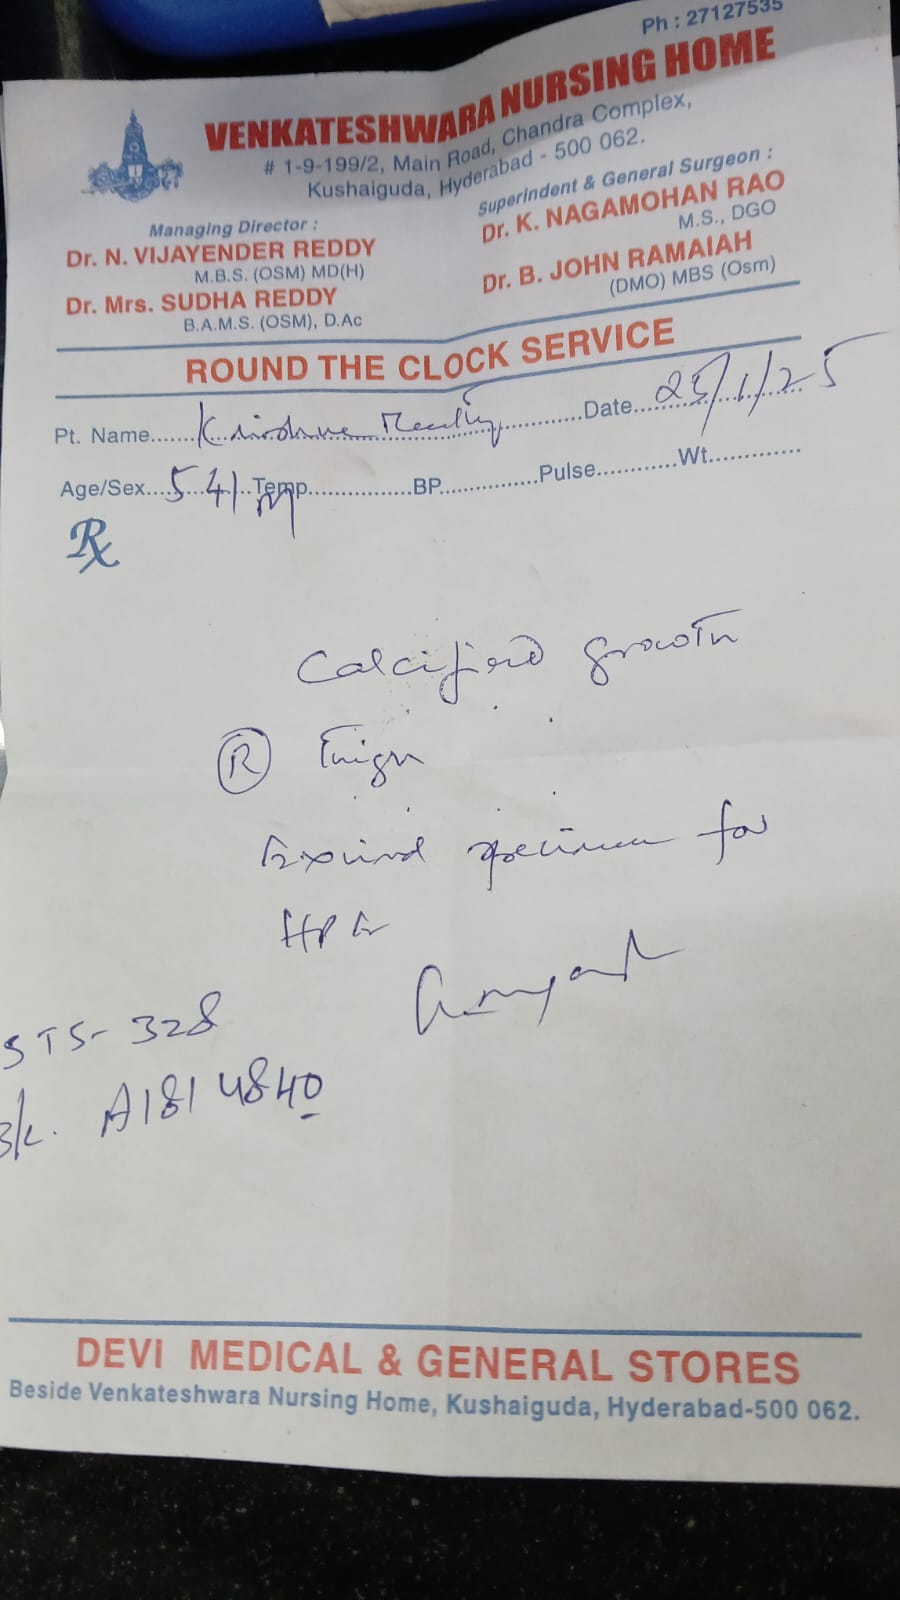 Ph : 27127535
VENKATESHWARA NURSING HOME
# 1-9-199/2, Main Road, Chandra Complex,
Kushaiguda, Hyderabad - 500 062.
Managing Director :
Dr. N. VIJAYENDER REDDY
M.B.S. (OSM) MD(H)
Dr. Mrs. SUDHA REDDY
B.A.M.S. (OSM), D.Ac
Superindent & General Surgeon :
Dr. K. NAGAMOHAN RAO
M.S., DGO
Dr. B. JOHN RAMAIAH
(DMO) MBS (Osm)
ROUND THE CLOCK SERVICE
Pt. Name....... Krishna Reddy ............Date... 25/1/25
Age/Sex.... 54/M ..Temp...............BP..............Pulse............Wt.............
Rx
Calcified growth
(R) Thigh
specimen for
HPE
STS- 328
A1814840
DEVI MEDICAL & GENERAL STORES
Beside Venkateshwara Nursing Home, Kushaiguda, Hyderabad-500 062.